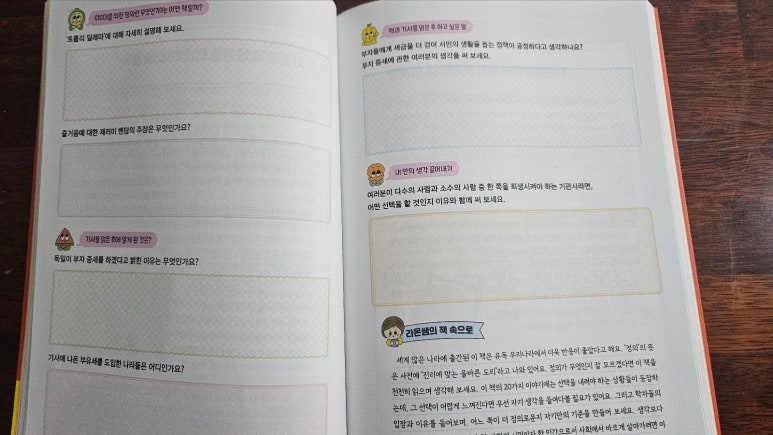 <10대를 위한 정의란 무엇인가>는 어떤 책일까?
'트롤리 딜레마'에 대해 자세히 설명해 보세요.
즐거움에 대한 제러미 벤담의 주장은 무엇인가요?
기사를 읽은 후에 알게 된 것은?
독일이 부자 증세를 하겠다고 밝힌 이유는 무엇인가요?
기사에 나온 부유세를 도입한 나라들은 어디인가요?
책과 기사를 읽은 후 하고 싶은 말
부자들에게 세금을 더 걷어 서민의 생활을 돕는 정책이 공정하다고 생각하나요?
부자 증세에 관한 여러분의 생각을 써 보세요.
내 안의 생각 끌어내기
여러분이 다수의 사람과 소수의 사람 중 한 쪽을 희생시켜야 하는 기관사라면,
어떤 선택을 할 것인지 이유와 함께 써 보세요.
라온쌤의 책 속으로
세계 많은 나라에 출간된 이 책은 유독 우리나라에서 더욱 반응이 좋았다고 해요. '정의'의 뜻
은 사전에 '진리에 맞는 올바른 도리'라고 나와 있어요. 정의가 무엇인지 잘 모르겠다면 이 책을
천천히 읽으며 생각해 보세요. 이 책의 20가지 이야기에는 선택을 내려야 하는 상황들이 등장하
는데, 그 선택이 어렵게 느껴진다면 우선 자기 생각을 들여다볼 필요가 있어요. 그리고 학자들의
입장과 이유를 들어보며, 어느 쪽이 더 정의로운지 자기만의 기준을 만들어 보세요. 생각보다
한 인간으로서 사회에서 바르게 살아가려면 이